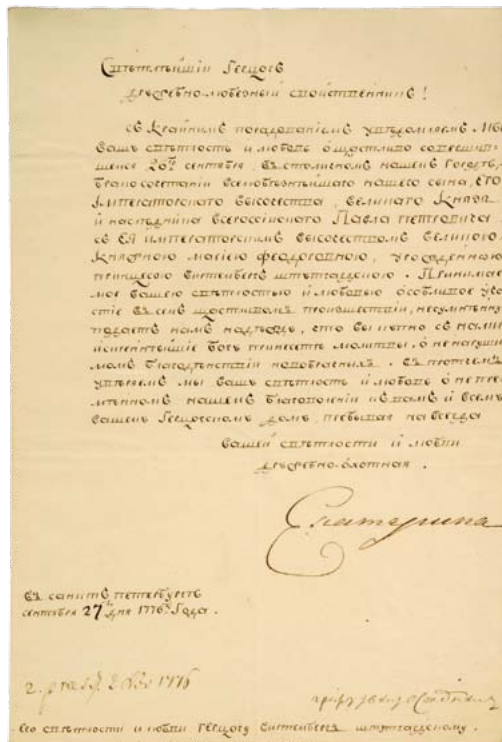 Свѣтлѣйшій Герцогъ
дружебно-любезный свойственникъ!
Съ крайнимъ порадованіемъ увѣдомляемъ Мы
вашу свѣтлость и любовь о щастливо совершив-
шемся 26го сентября, въ столичномъ нашемъ городѣ,
бракосочетаніи вселюбезнѣйшаго нашего сына, его
Императорскаго Высочества, Великаго Князя
и наслѣдника всероссійскаго Павла Петровича
съ Ея Императорскимъ Высочествомъ Великою
Княгинею Маріею Феодоровною, урожденною
принцесою Виртембергъ штутгардскою. Принимае-
мое вашею свѣтлостью и любовью особливое уча-
стіе въ семъ щастливомъ произшествіи, несумнѣнную
подаетъ намъ надежду, что вы купно съ нами
молитвы, о ненаруши-
момъ благоденствіи новобрачныхъ. Въ протчемъ
увѣряемъ мы вашу свѣтлость и любовь о непре-
мѣнномъ нашемъ благоволеніи къ вамъ и всему
вашему Герцогскому дому, пребывая на всегда
вашей свѣтлости и любви
дружебно-охотная.
Екатерина
Въ санктъ петербургѣ
сентября 27го дня 1776го Года.
1776
графъ
Его свѣтлости и любви герцогу Виртембергъ штутгардскому.